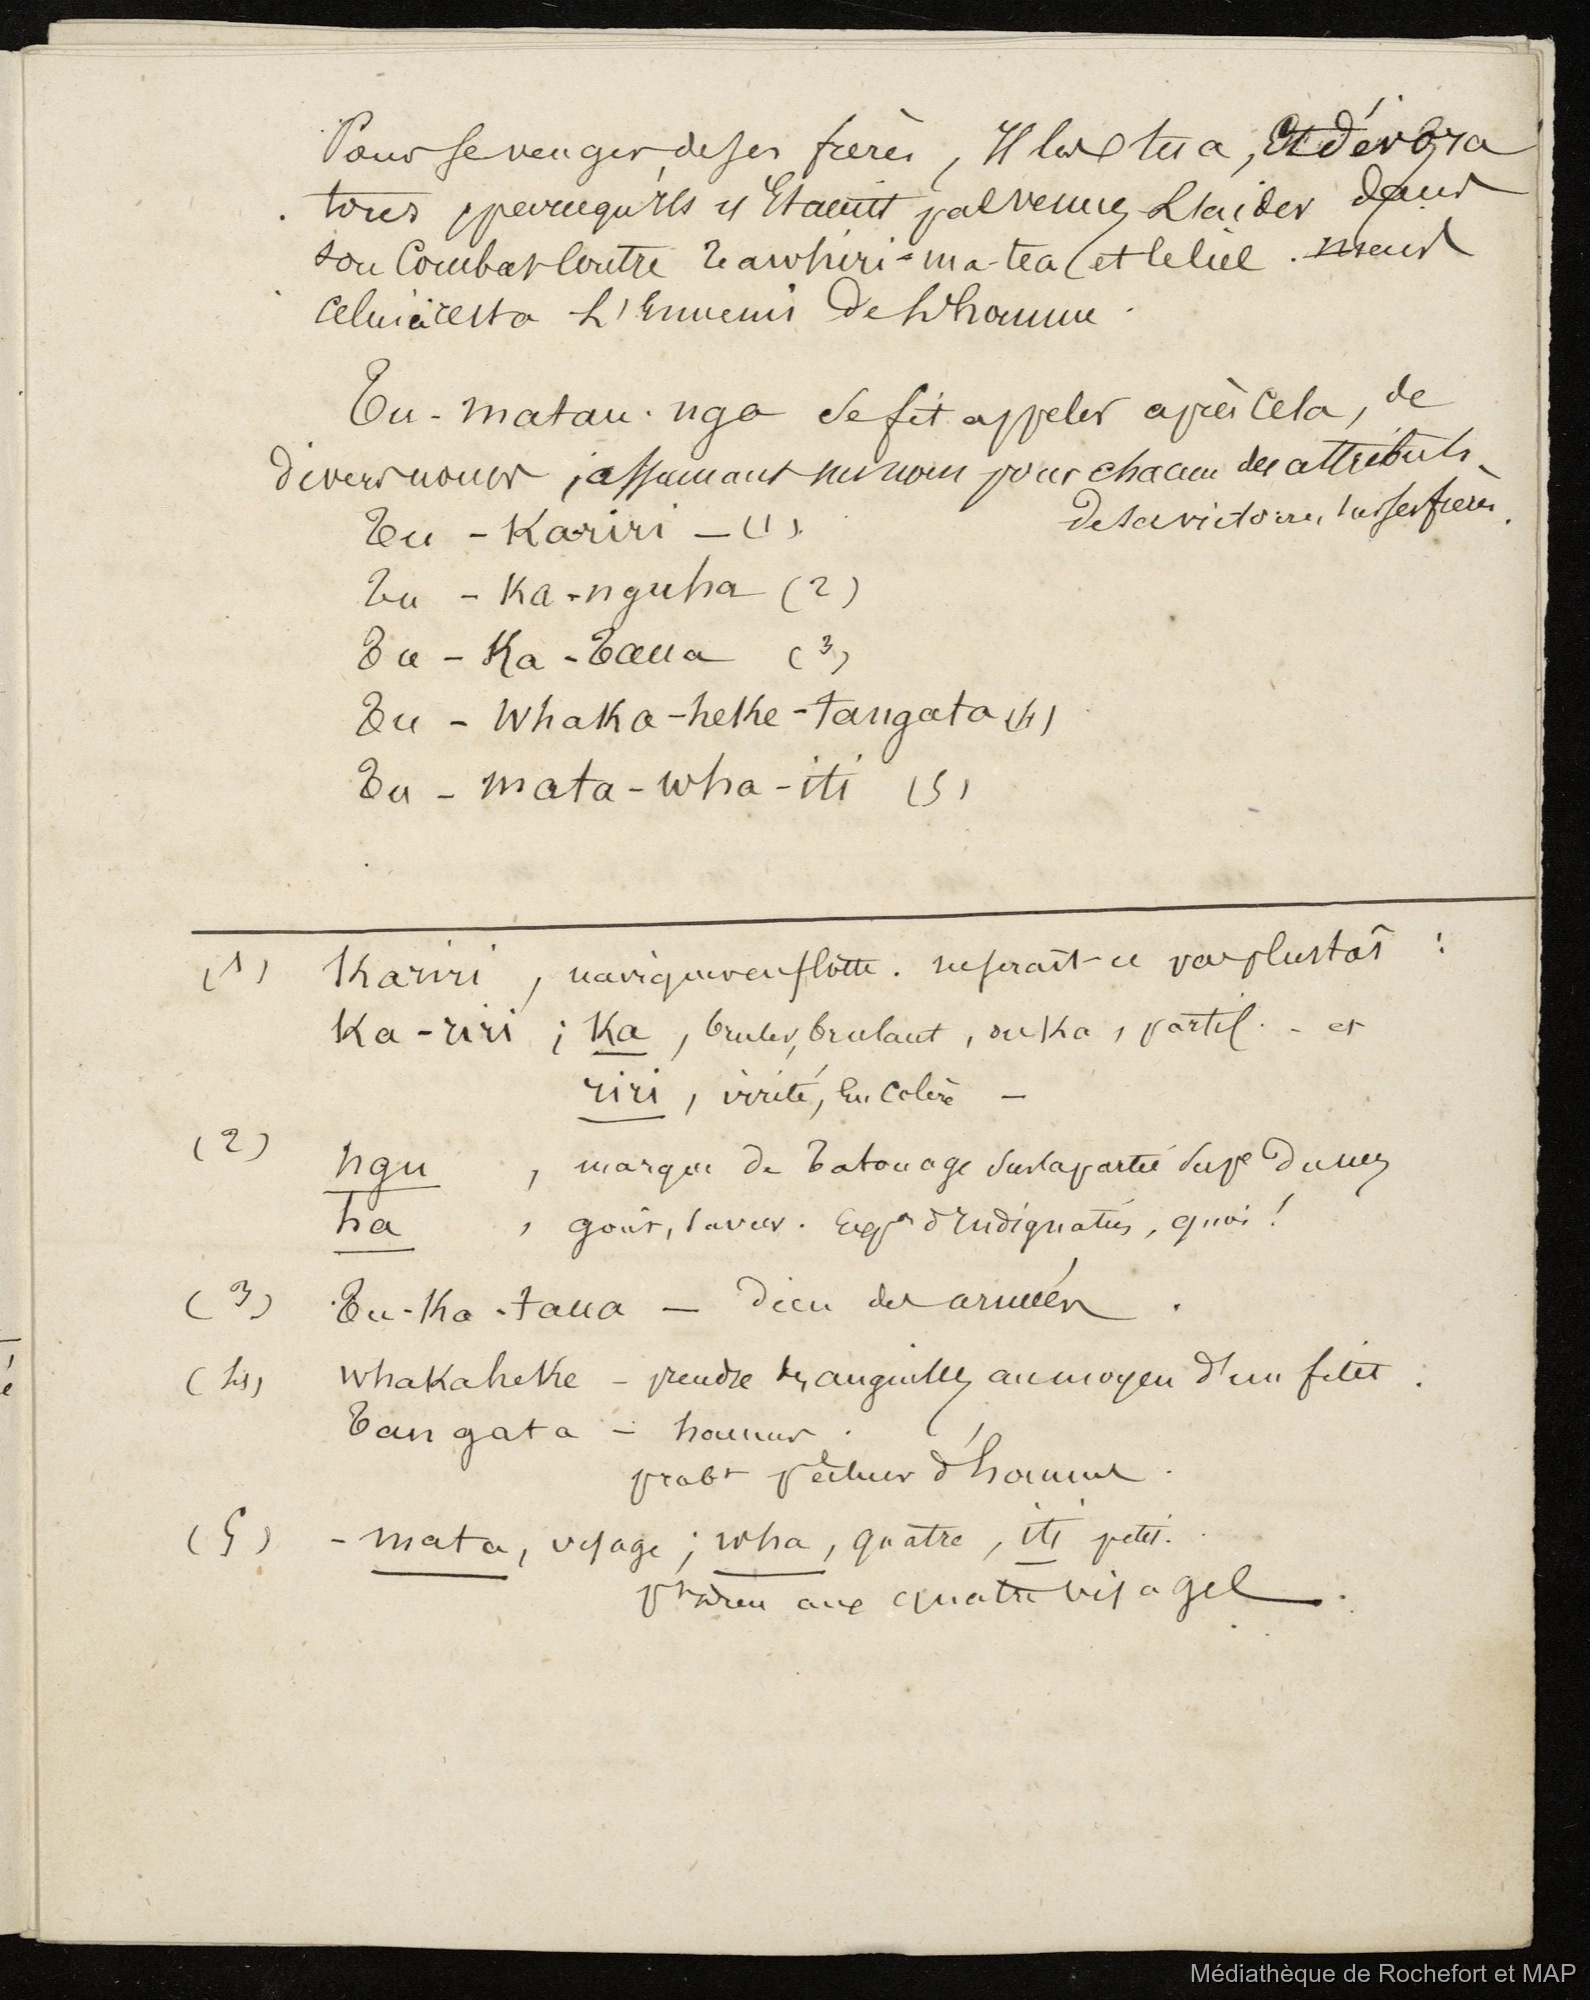 Pour se venger de ses frères, Il les tua, Et dévora
tous parcequ'ils n'Etaient pas venus L'aider dans
son Combat Contre Tawhiri-ma-tea (et le Ciel. mais
celui ci resta L'Ennemi De L'homme.
Tu-matau-nga se fit appeler après Cela, de
divers noms, assumant un nom pour chacun des attributs
de sa victoire, sur ses frères.
Tu - Kariri - (1).
Tu - Ka-nguha (2)
Tu - Ka-Taua (3)
Tu - Whaka-heke-tangata (4)
Tu - mata-wha-iti (5)
(1) Kariri, naviguer en flotte. ne serait-ce pas plustôt :
Ka-riri ; Ka, bruler, brulant, ou Ka, partic. - et
riri, irrité, En Colère -
(2) ngu, marque de Tatouage sur la partie supe du nez
ha, goût, saveur. Expon d'Indignation, quoi !
(3) Tu-Ka-taua - Dieu des armées.
(4) whakaheke - prendre des anguilles au moyen d'un filet.
Tangata - hommes.
probt pêcheur d'hommes.
(5) - mata, visage ; wha, quatre, iti petit.
pt Dieu aux quatre visages.
Médiathèque de Rochefort et MAP